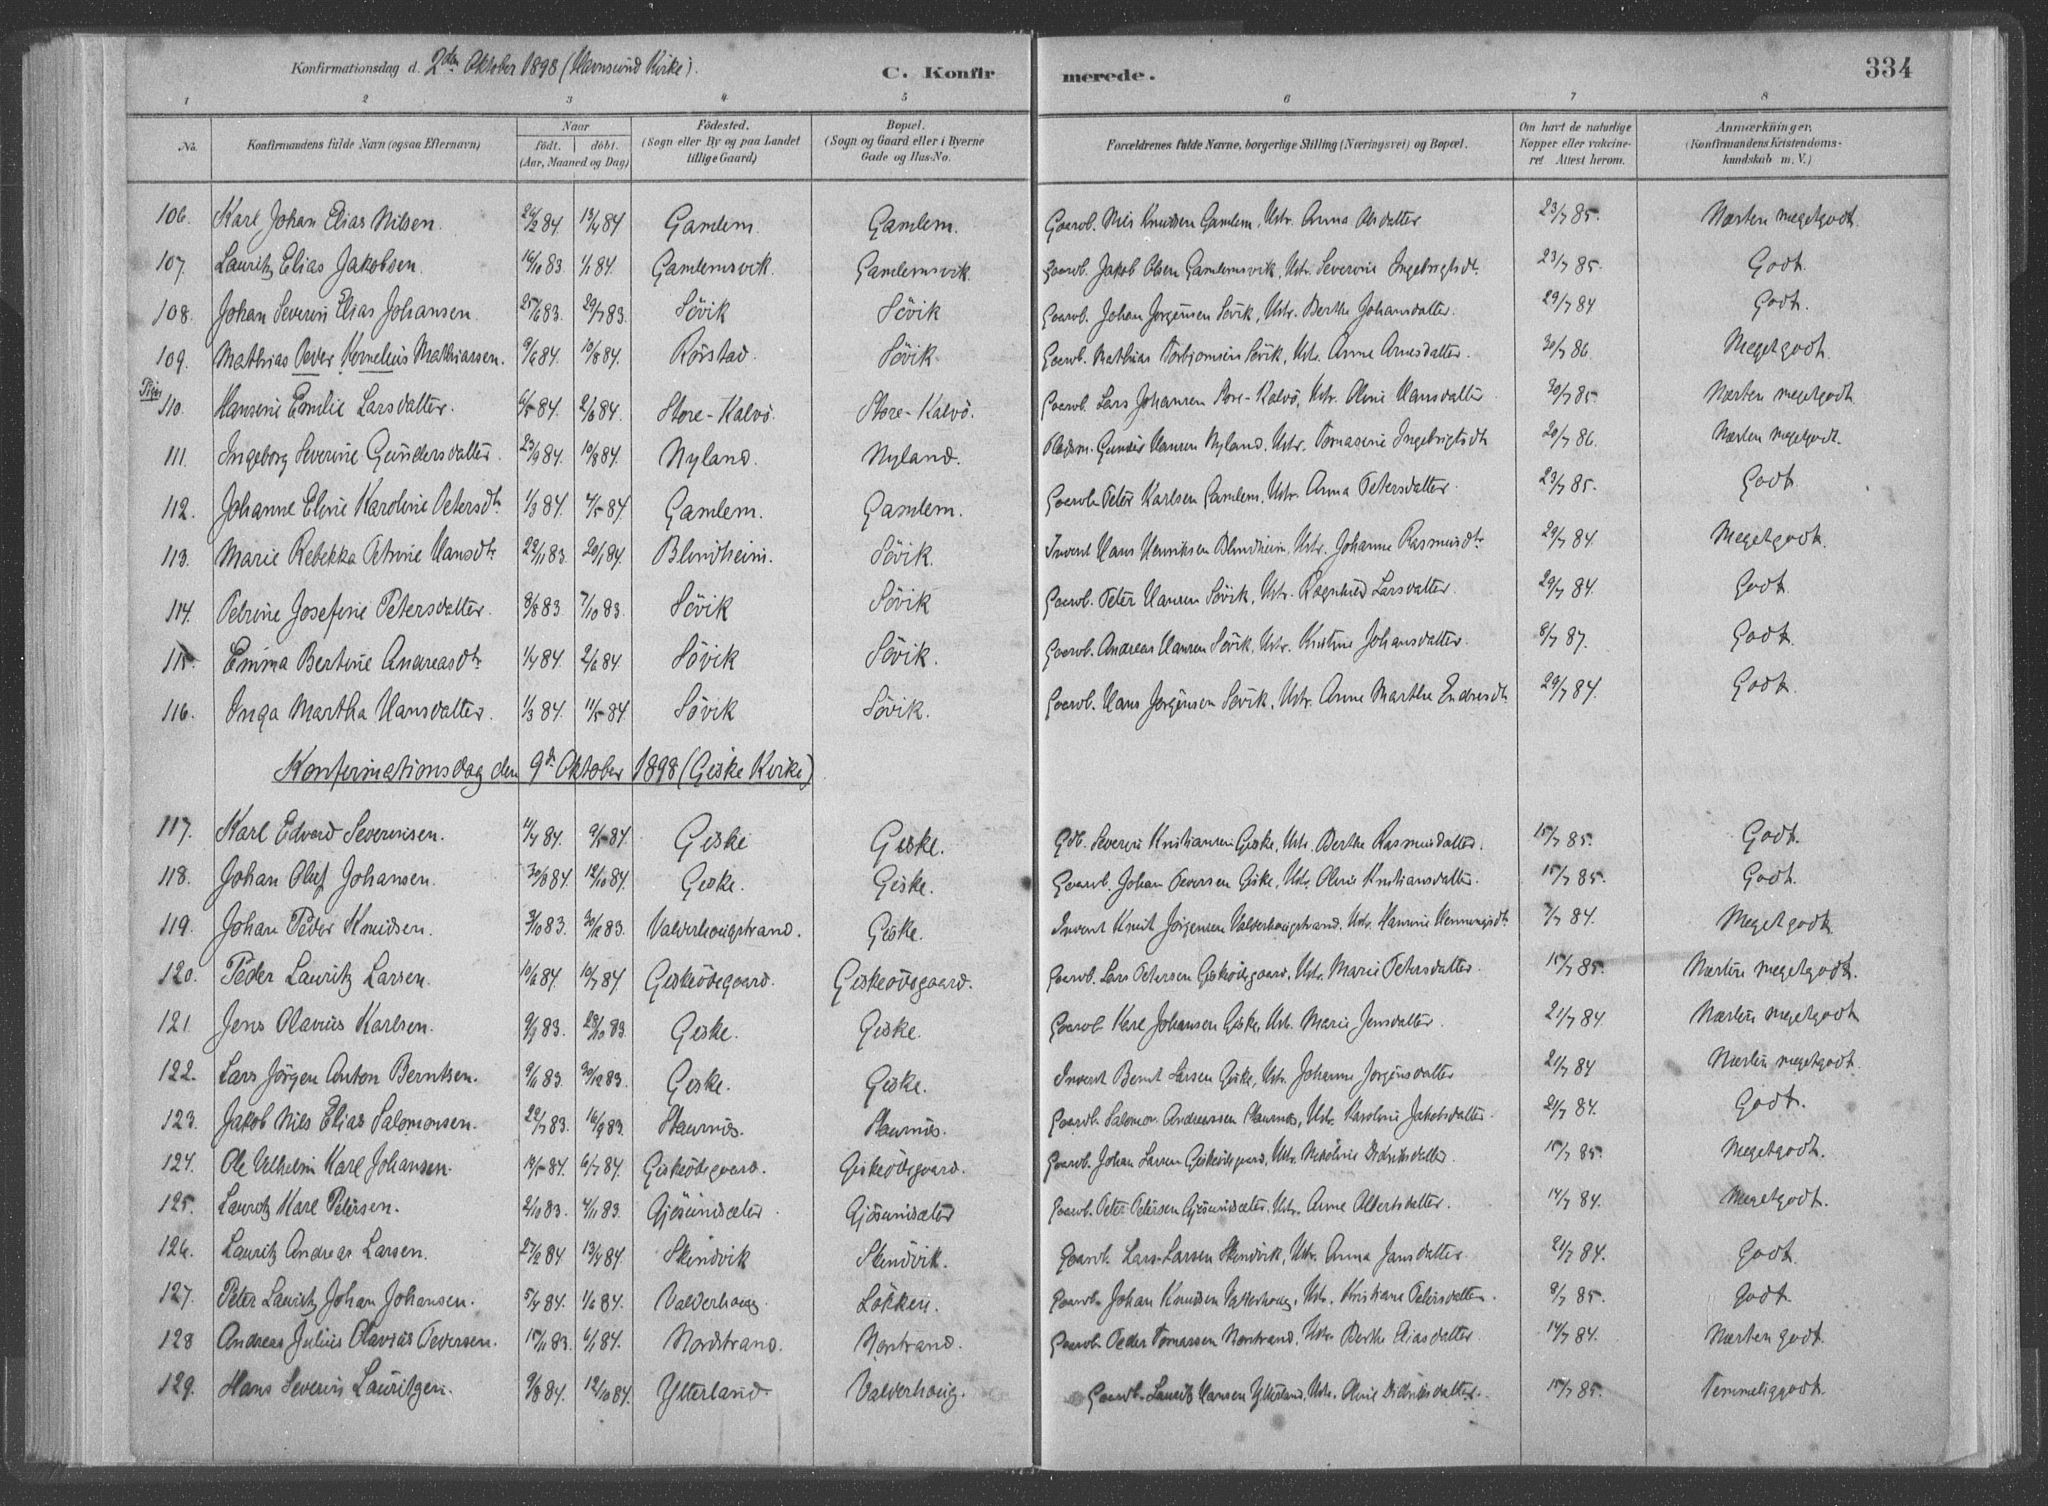 Konfirmationsdag d. 2den Oktober 1898 (Havnsund Kirke). C. Konfirmerede. 334
1 2 3 4 5 6 7 8
No. Konfirmandens fulde Navn (ogsaa Efternavn) Naar født. døbt. (Aar, Maaned og Dag) Fødested. (Sogn eller By og paa Landet tillige Gaard) Bopæl. (Sogn og Gaard eller i Byerne Gade og Hus-No. Forældrenes fulde Navne, borgerlige Stilling (Næringsvei) og Bopæl. Om havt de naturlige Kopper eller vakcineret Attest herom. Anmærkninger. (Konfirmandens Kristendomskundskab m. V.)
106. Karl Johan Elias Nilsen. 26/2 84 13/4 84 Gamlem. Gamlem. Gaarb. Nils Knudsen Gamlem, Ustr. Anna Olsdatter 23/7 85. Næsten megetgodt.
107. Lauritz Elias Jakobsen. 16/10 83. 1/1 84. Gamlemsvik. Gamlemsvik. Gaarb. Jakob Olsen Gamlemsvik, Ustr. Severine Ingebrigtsdtr. 23/7 85. Godt.
108. Johan Severin Elias Johansen. 25/6 83. 29/7 83. Sövik Sövik Gaarb. Johan Jørgensen Sövik, Ustr. Berthe Johansdatter. 29/7 84 Godt.
109. Mathias Peder Kornelius Mathiassen. 9/6 84. 10/8 84. Rörstad. Sövik Gaarb. Mathias Torbjørnsen Sövik, Ustr. Anne Arnesdatter. 30/7 86 Megetgodt.
Piger 110. Hansine Emilie Larsdatter. 6/5 84. 2/6 84. Store-Kalvö. Store-Kalvö. Gaarb. Lars Johansen Store-Kalvö, Ustr. Oline Hansdatter. 30/7 85. Næsten megetgodt
111. Ingeborg Severine Gundersdatter. 23/4 84. 10/8 84. Nyland. Nyland. Gunder Hansen Nyland. Ustr. Tomasine Ingebrigtsdtr. 20/7 86. Næsten megetgodt.
112. Johanne Eline Karoline Petersdtr. 1/3 84. 4/5 84. Gamlem. Gamlem. Gaarb. Peter Karlsen Gamlem, Ustr. Anna Petersdatter 23/7 85. Godt
113. Marie Rebekka Petrine Hansdtr. 22/11 83. 20/1 84. Blindheim. Sövik. Inderst Hans Henriksen Blindheim, Ustr. Johanne Rasmusdtr. 29/7 84. Megetgodt.
114. Petrine Josefine Petersdatter. 8/8 83. 7/10 83. Sövik Sövik Gaarb. Peter Hansen Sövik, Ustr. Ragnhild Larsdatter. 29/7 84. Godt
115. Emma Bertine Andreasdtr 1/4 84. 2/6 84. Sövik Sövik. Gaarb. Andreas Hansen Sövik, Ustr. Kristine Johansdatter. 8/7 87. Godt.
116. Inga Martha Hansdatter. 1/3 84. 11/5 84 Sövik Sövik. Gaarb. Hans Jørgensen Sövik, Ustr. Anne Marthe Endresdtr. 29/7 84. Godt.
Konfirmationsdag den 9d. Oktober 1898 (Giske Kirke)
117. Karl Edvard Severinsen. 11/4 84. 9/5 84 Giske Giske. Gdb. Severin Kristiansen Giske, Ustr. Berthe Rasmusdatter. 15/7 85. Godt.
118. Johan Oluf Johansen. 30/8 84. 12/10 84. Giske. Giske. Gaarb. Johan Peversen Giske, Ustr. Oline Kristiansdatter. 15/7 85. Godt.
119. Johan Peder Knudsen. 3/10 83. 30/12 83. Valderhougstrand. Giske. Inderst Knut Jørgensen Valderhougstrand, Ustr. Hansine Henningsdtr. 7/7 84. Megetgodt
120. Peder Lauritz Larsen. 10/6 84. 19/7 84 Giskeödegaard. Giskeödegaard. Gaarb. Lars Petersen Giskeödegaard, Ustr. Marie Petersdatter. 15/7 85. Næsten megetgodt.
121. Jens Olavius Karlsen. 9/9 83. 28/10 83. Giske. Giske. Gaarb. Karl Johansen Giske, Ustr. Marie Jensdatter. 21/7 84 Næsten megetgodt
122. Lars Jörgen Anton Berntsen. 9/11 83. 30/12 83. Giske. Giske. Inderst Bernt Larsen Giske, Ustr. Johanne Jørgensdatter 21/7 84 Næsten megetgodt.
123. Jakob Nils Elias Salomonsen. 22/7 83. 16/9 83. Staurnes. Staurnes. Gaardb. Salomon Andreassen Staurnes, Ustr. Karoline Jakobsdatter. 21/7 84. Godt.
124. Ole Vilhelm Karl Johansen. 19/5 84. 6/7 84. Giskeödegaard. Giskeödegaard. Gaarb. Johan Larsen Giskeödegaard, Ustr. Nikoline Didriksdatter. 15/7 85. Megetgodt.
125. Lauritz Karl Petersen. 2/10 83. 4/11 83. Gjösundsæter. Gjösundsæter Gaarb. Peter Petersen Gjösundsæter, Ustr. Anne Olbertsdatter. 14/7 84. Megetgodt.
126. Lauritz Andreas Larsen. 27/2 84 13/4 84. Skindvik Skindvik. Gaarb. Lars Larsen Skindvik, Ustr. Anna Jansdatter. 21/7 84. Godt.
127. Peter Lauritz Johan Johansen. 5/4 84. 1/6 84. Valderhoug. Lökken. Gaarb. Johan Knudsen Valderhoug, Ustr. Kristiane Petersdatter. 8/7 85. Godt.
128 Andreas Julius Olavius Pedersen. 15/11 83. 6/1 84. Nordstrand. Nordstrand. Gaarb. Peder Tomassen Nordstrand, Ustr. Berthe Eliasdatter. 14/7 84. Næsten godt.
129. Hans Severin Lauritzen. 9/8 84. 12/10 84. Ytterland. Valderhoug. Gaarb. Lauritz Hansen Ytterland, Ustr. Oline Didriksdatter. 15/7 85. Temmeliggodt.